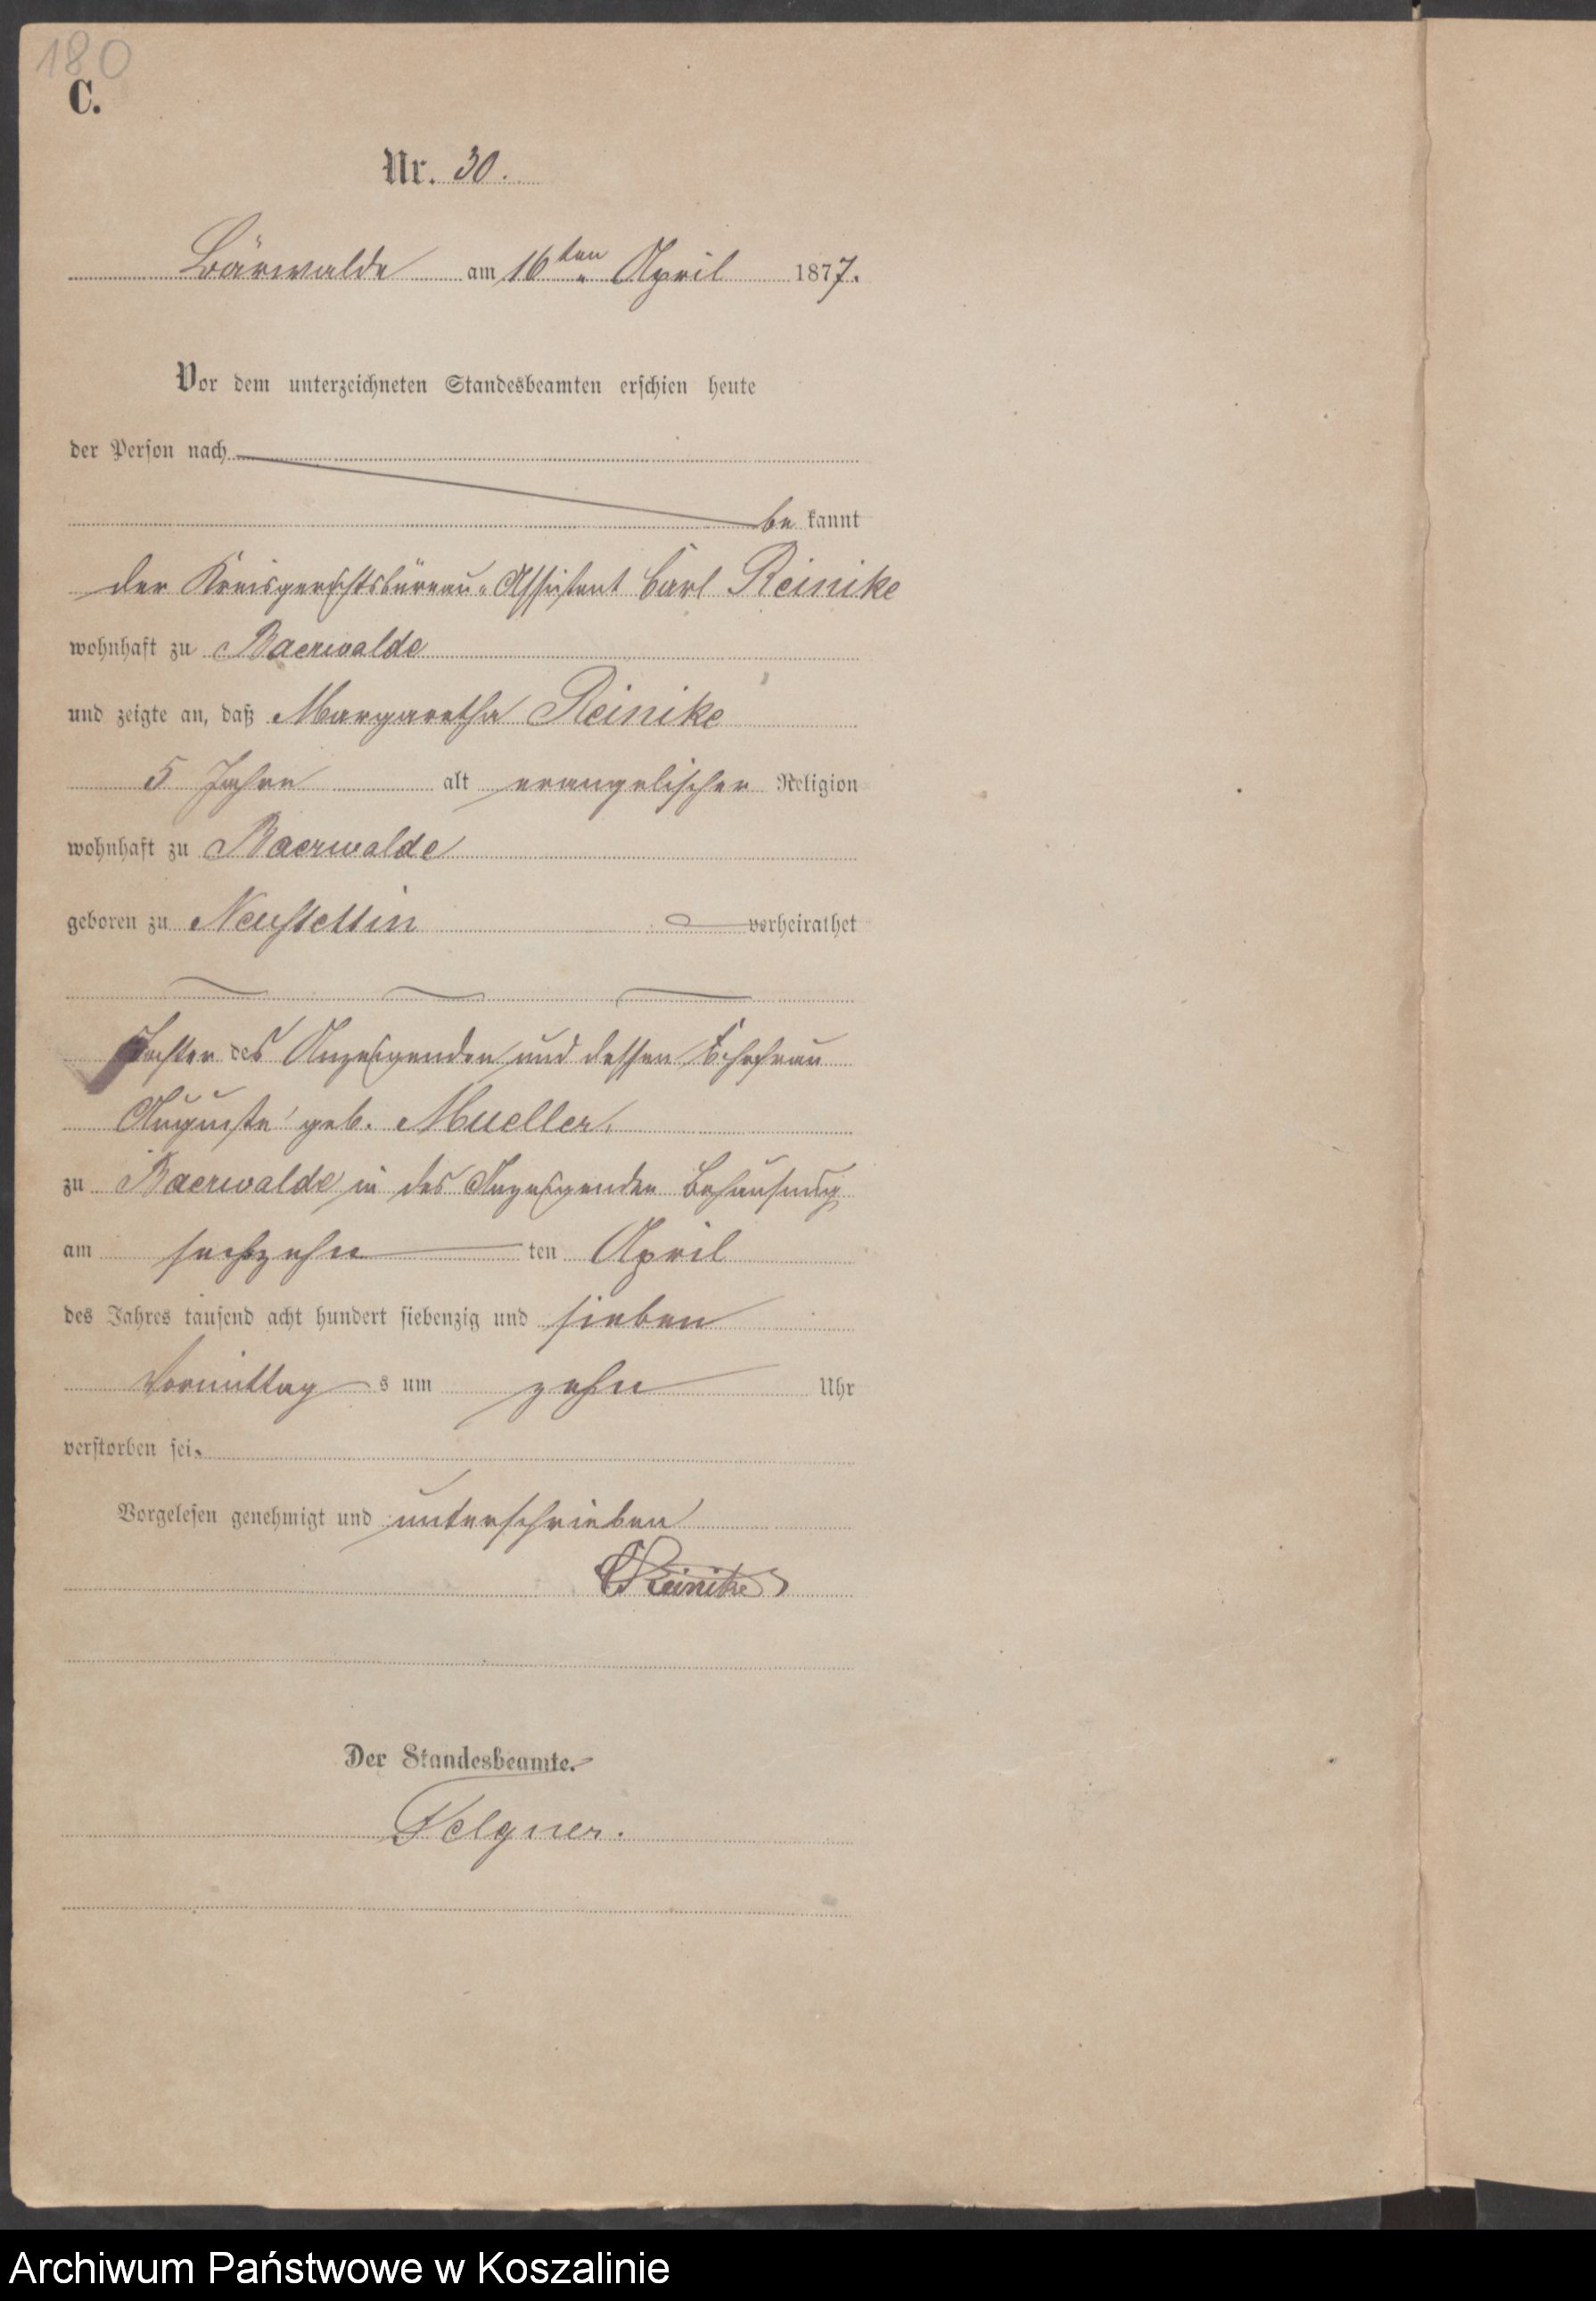 180
C.
Nr. 30.
Bärwalde am 16ten April 1877.
Vor dem unterzeichneten Standesbeamten erschien heute
der Person nach
be kannt
der Kreisgerichtsbüreau-Assistent Carl Reinike
wohnhaft zu Baerwalde
und zeigte an, daß Margarethe Reinike
5 Jahre alt evangelischer Religion
wohnhaft zu Baerwalde
geboren zu Neustettin verheirathet
Tochter des Anzeigenden und dessen Ehefrau
Auguste geb. Mueller,
zu Baerwalde in des Anzeigenden Behausung
am sechszehn ten April
des Jahres tausend acht hundert siebenzig und sieben
Vormittag s um zehn Uhr
verstorben sei.
Vorgelesen genehmigt und unterschrieben
C Reinike
Der Standesbeamte.
Felgner.
Archiwum Państwowe w Koszalinie